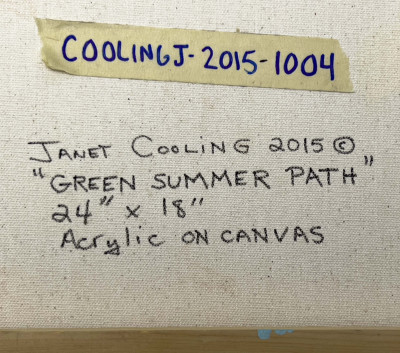 COOLINGJ-2015-1004
JANET COOLING 2015 ©
"GREEN SUMMER PATH"
24" x 18"
Acrylic ON CANVAS